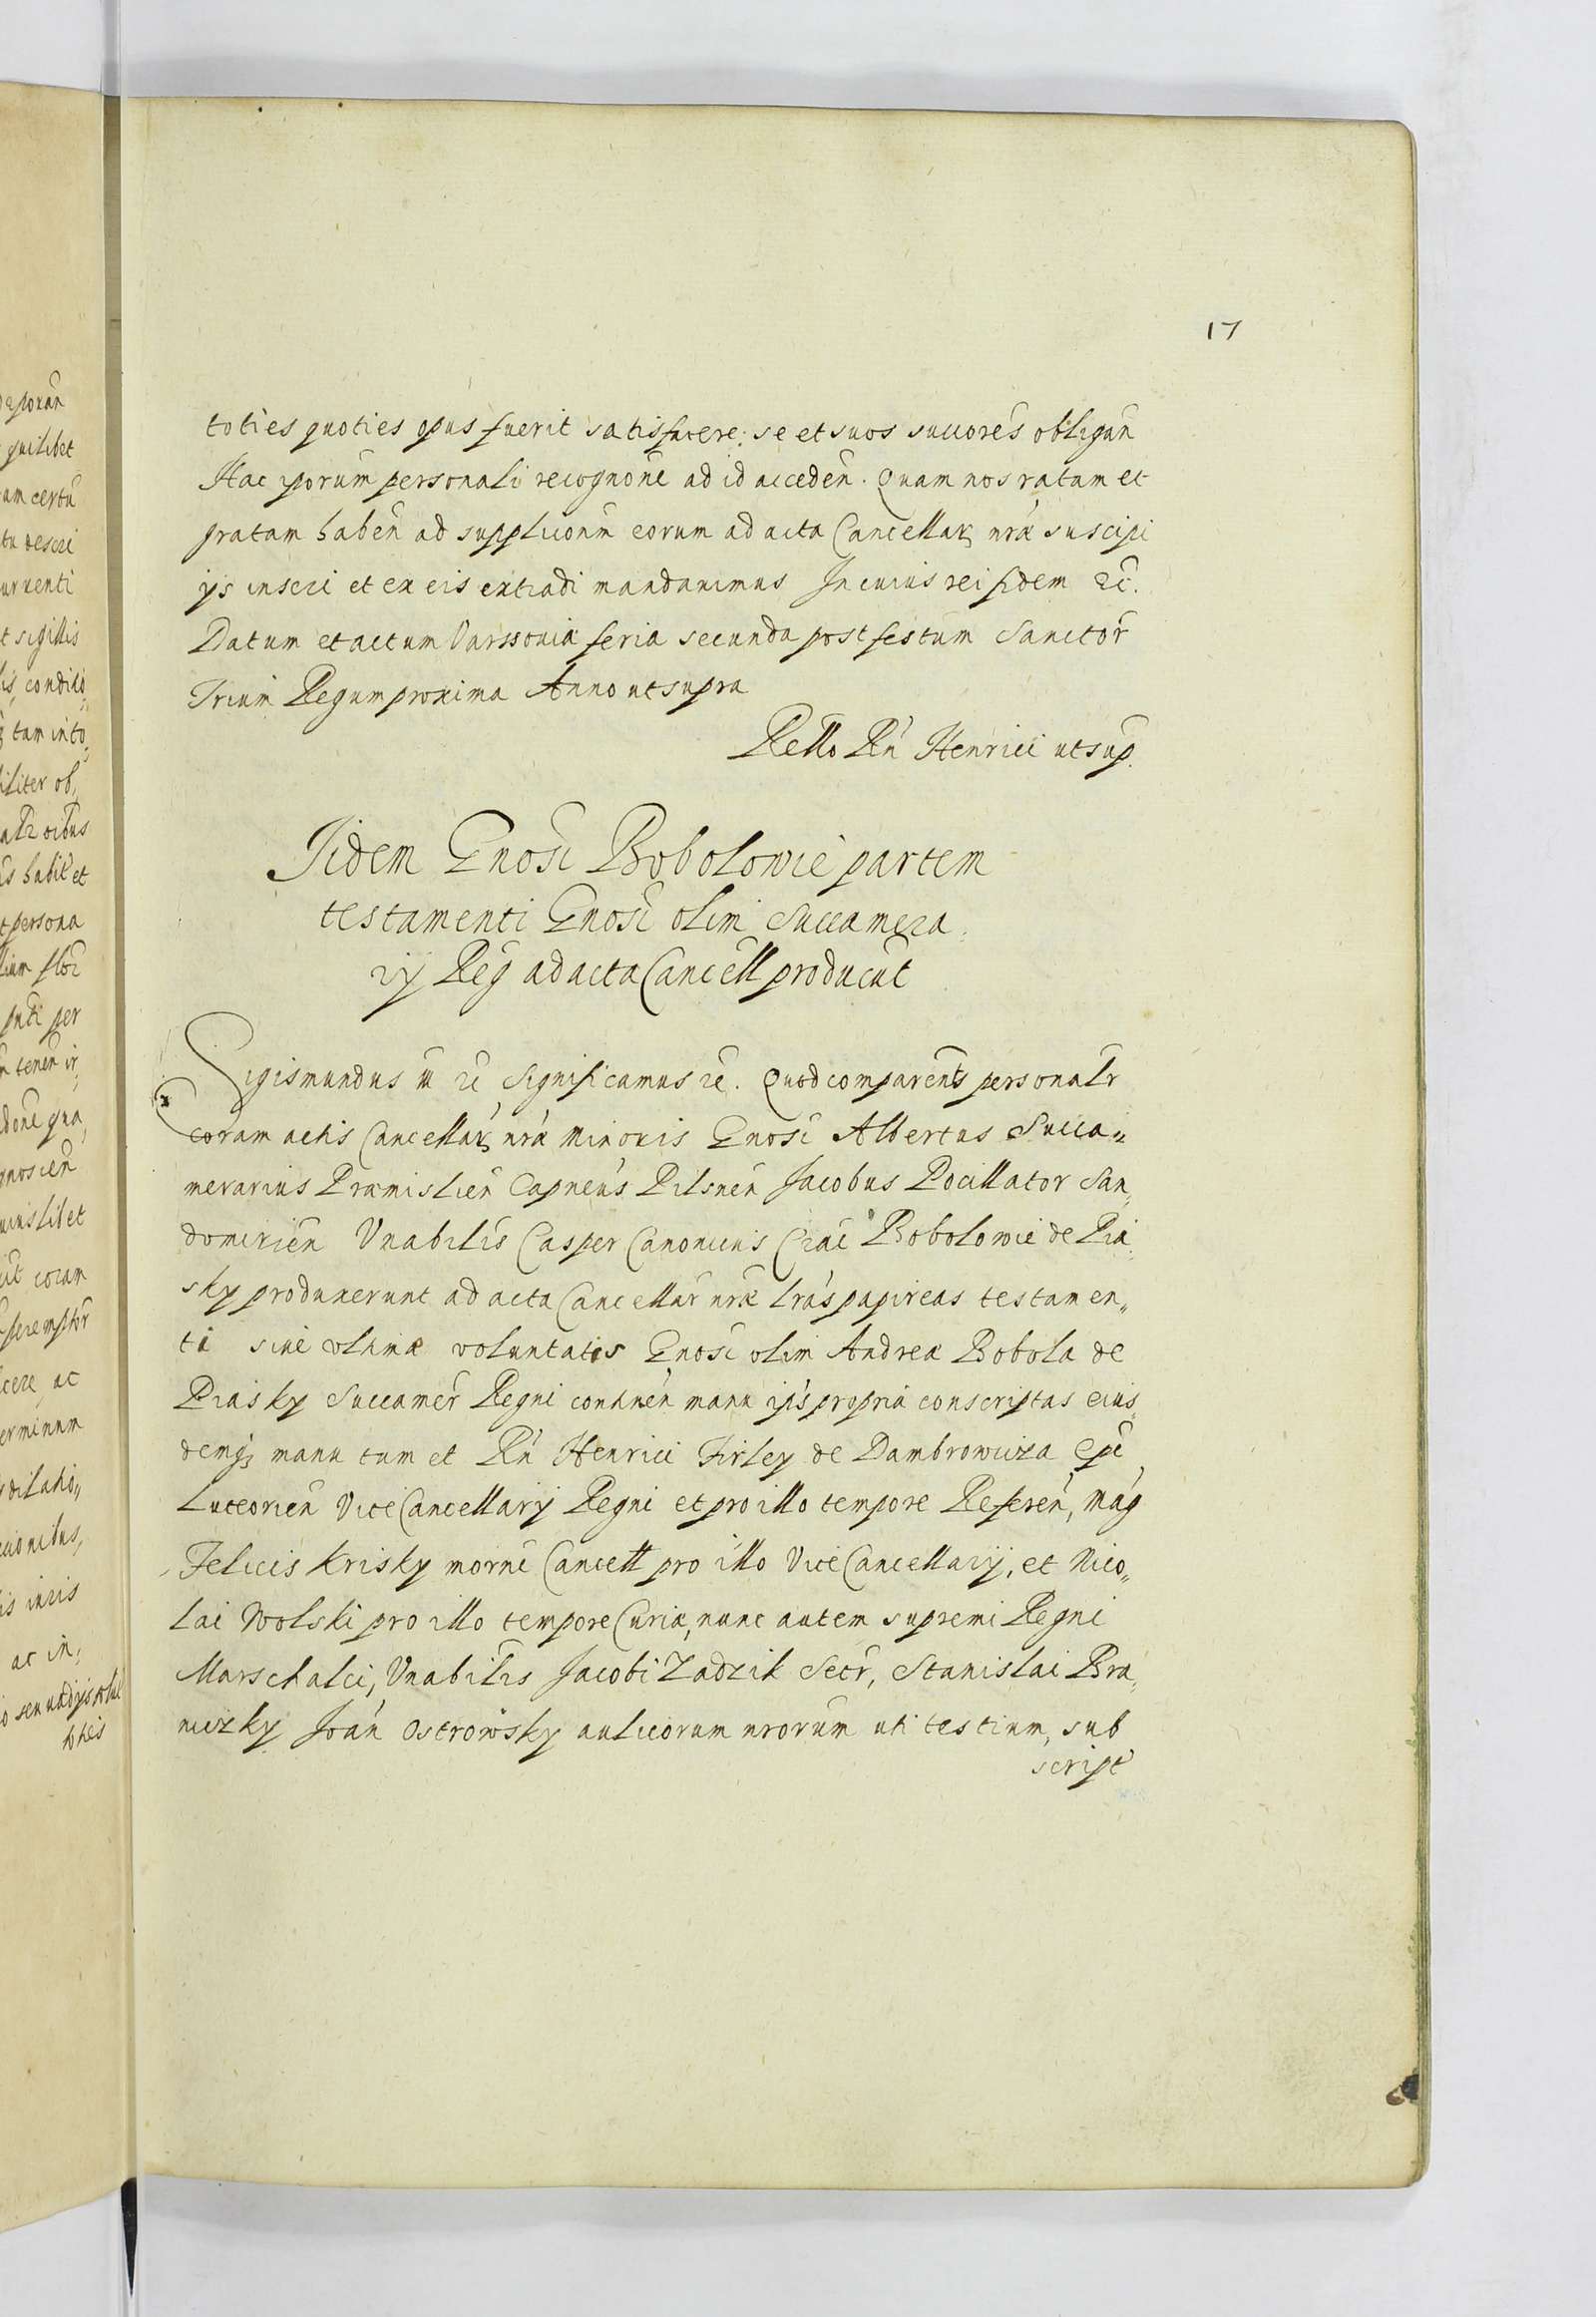 17
toties quoties opus fuerit satisfacere: se et suos succores obligan̄
Hac ipsorum personali recognone ad id acceden̄. Quam nos ratam et
gratam haben̄ ad supplicionm eorum ad acta Cancellar nr̄æ suscipi
ijs inseri et ex eis extradi mandavimus In cuius rei fidem etc̄.
Datum et actum Varssoviæ feria secunda post festum Sanctor̄
Trium Regum proxima Anno ut supra
Rello Rn̄ Henrici ut sup.
Iidem Gnosi Bobolowie partem
testamenti Gnosi olim Succamera
rij Reg ad acta Cancell producūt
Sigismundus III etc̄ Significamus etc̄. Quod comparentes personalr
coram actis Cancellar nr̄æ Minoris Gnosi Albertus Succa„
merarius Præmislien̄ Capneus Pilsnen̄ Jacobus Pocillator San„
domirien̄ Vnabilis Casper Canonicus Crac̄ Bobolowie de Pia
sky produxerunt ad acta Cancellar̄ nr̄æ lrás papireas testamen„
ti sive ultimæ voluntatis Gnosi olim Andreæ Bobola de
Piasky Succamer̄ Regni continen̄ manu ips propria conscriptas eius„
demq; manu tum et Rn̄ Henrici Firley de Dambrowicza Epī
Luceorien̄ ViceCancellarij Regni et pro illo tempore Referen̄, Mag
Felicis Krisky morni Cancell pro illo ViceCancellarij, et Nico„
lai Wolski pro illo tempore Curiæ, nunc autem supremi Regni
Marschalci, Vnabilis Jacobi Zadzik Secr̄, Stanislai Bra„
niczky Joan̄ Ostrowsky aulicorum nrorum uti testium, sub
script
quilibet
am certū
t sigillis
tam into„
iliter ob„
t persona
ac in„